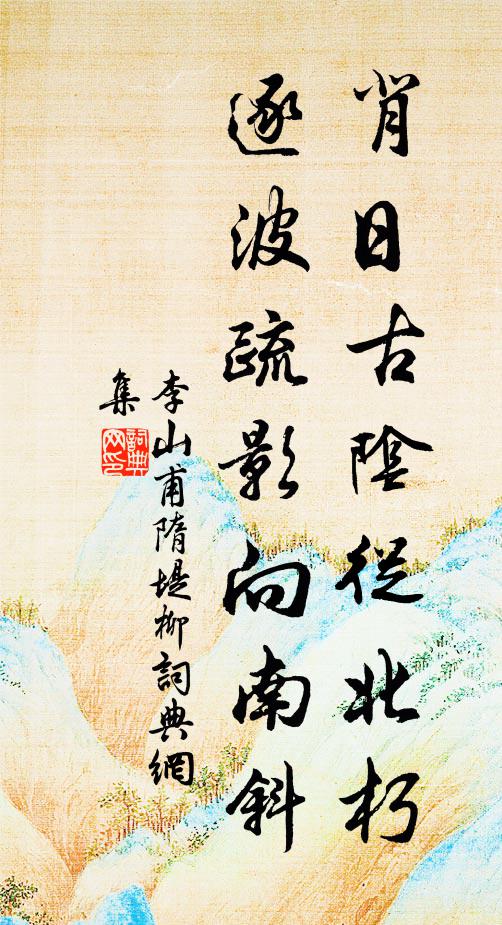 背日古陰從北朽
逐波疏影向南斜
李山甫隋堤柳詞典網
集
詞典網印